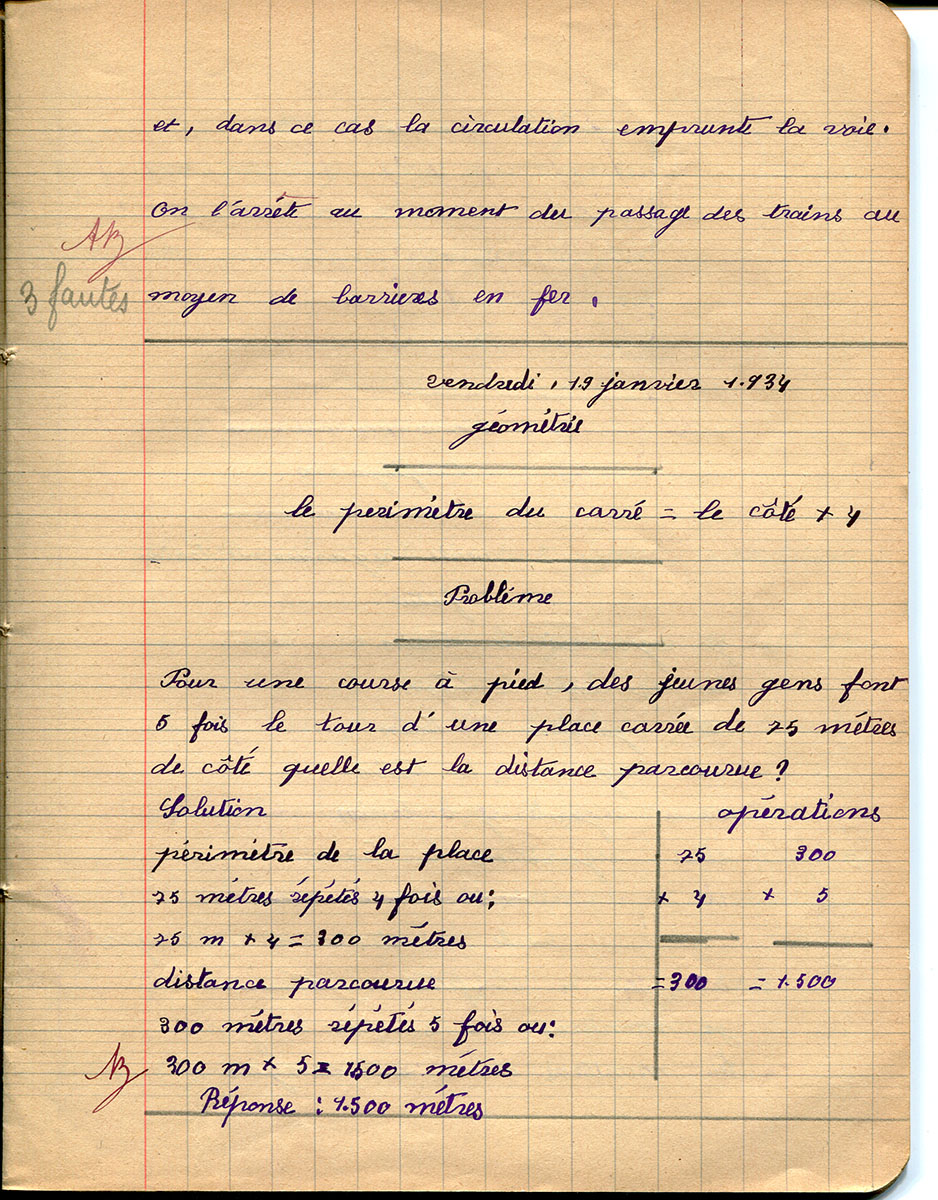 et, dans ce cas la circulation emprunte la voie.
On l'arrête au moment du passage des trains au
AB
3 fautes
moyen de barrieres en fer.
vendredi, 19 janvier 1.934
géométrie
le perimètre du carré = le côté × 4
Probléme
Pour une course à pied, des jeunes gens font
5 fois le tour d'une place carrée de 75 métres
de côté quelle est la distance parcourue?
Solution
opérations
périmètre de la place
75 300
75 métres répétés 4 fois ou:
× 4 × 5
75 m × 4 = 300 métres
distance parcourue
=300 =1.500
300 métres répétés 5 fois ou:
300 m × 5 = 1500 métres
Réponse : 1.500 métres